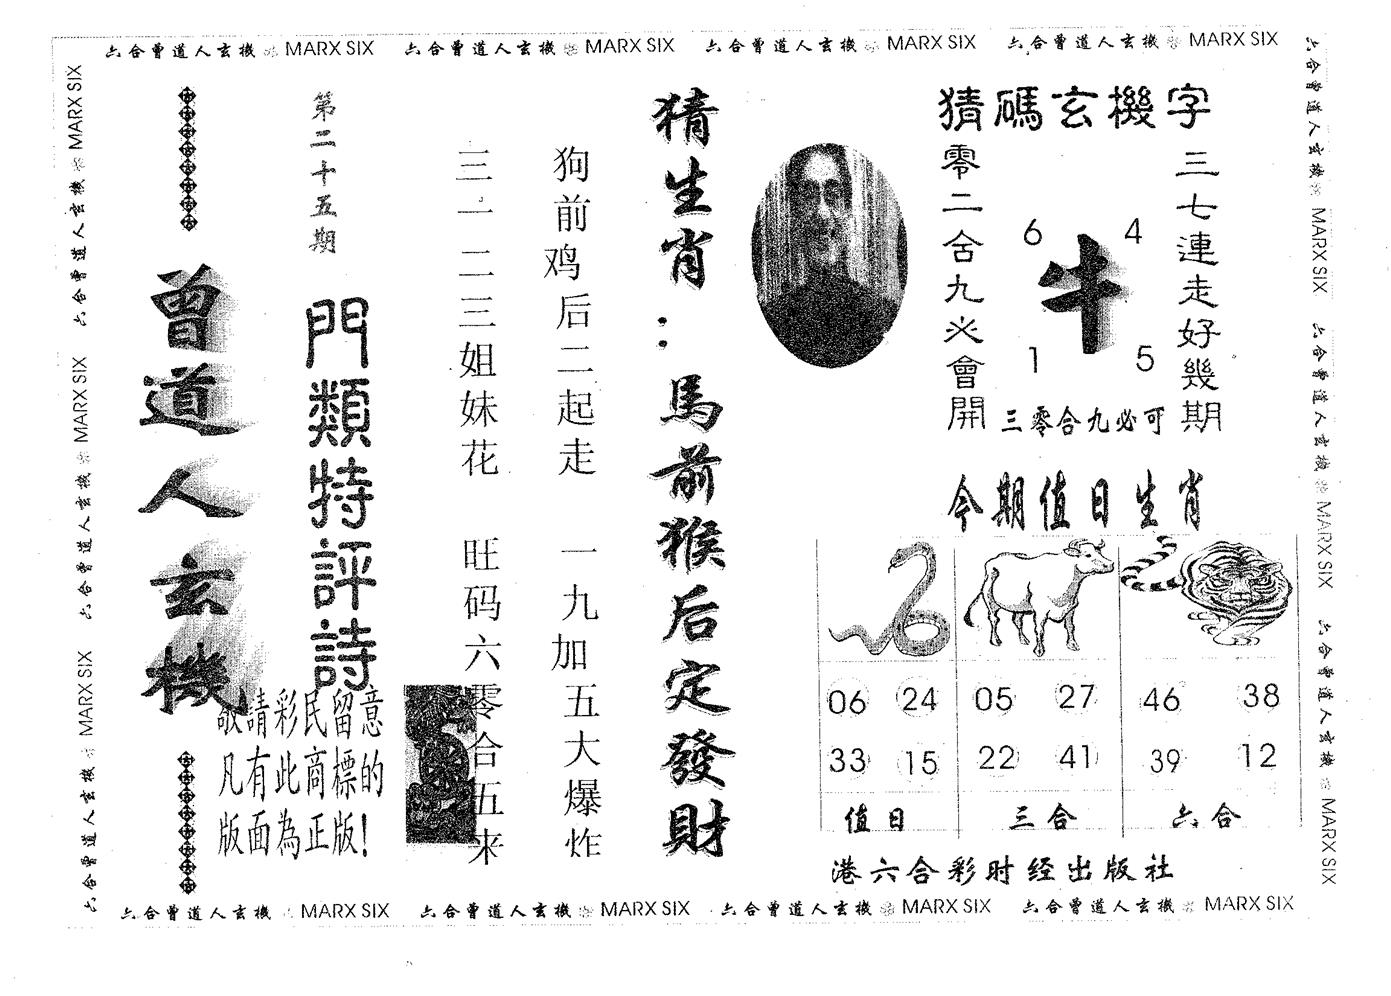 六合曾道人玄機 MARX SIX 六合曾道人玄機 MARX SIX 六合曾道人玄機 MARX SIX 六合曾道人玄機 MARX SIX
六合曾道人玄機 MARX SIX 六合曾道人玄機 MARX SIX 六合曾道人玄機 MARX SIX
猜碼玄機字
三七連走好幾期
零二舍九必會開
6 4
牛
1 5
三零合九必可
今期值日生肖
06 24 05 27 46 38
33 15 22 41 39 12
值日 三合 六合
港六合彩时经出版社
猜生肖:馬前猴后定發財
狗前鸡后二起走 一九加五大爆炸
三一二三姐妹花 旺码六零合五来
第二十五期
門類特評詩
曾道人玄機
敬請彩民留意
凡有此商標的
版面為正版!
六合曾道人玄機 MARX SIX 六合曾道人玄機 MARX SIX 六合曾道人玄機 MARX SIX
六合曾道人玄機 MARX SIX 六合曾道人玄機 MARX SIX 六合曾道人玄機 MARX SIX 六合曾道人玄機 MARX SIX